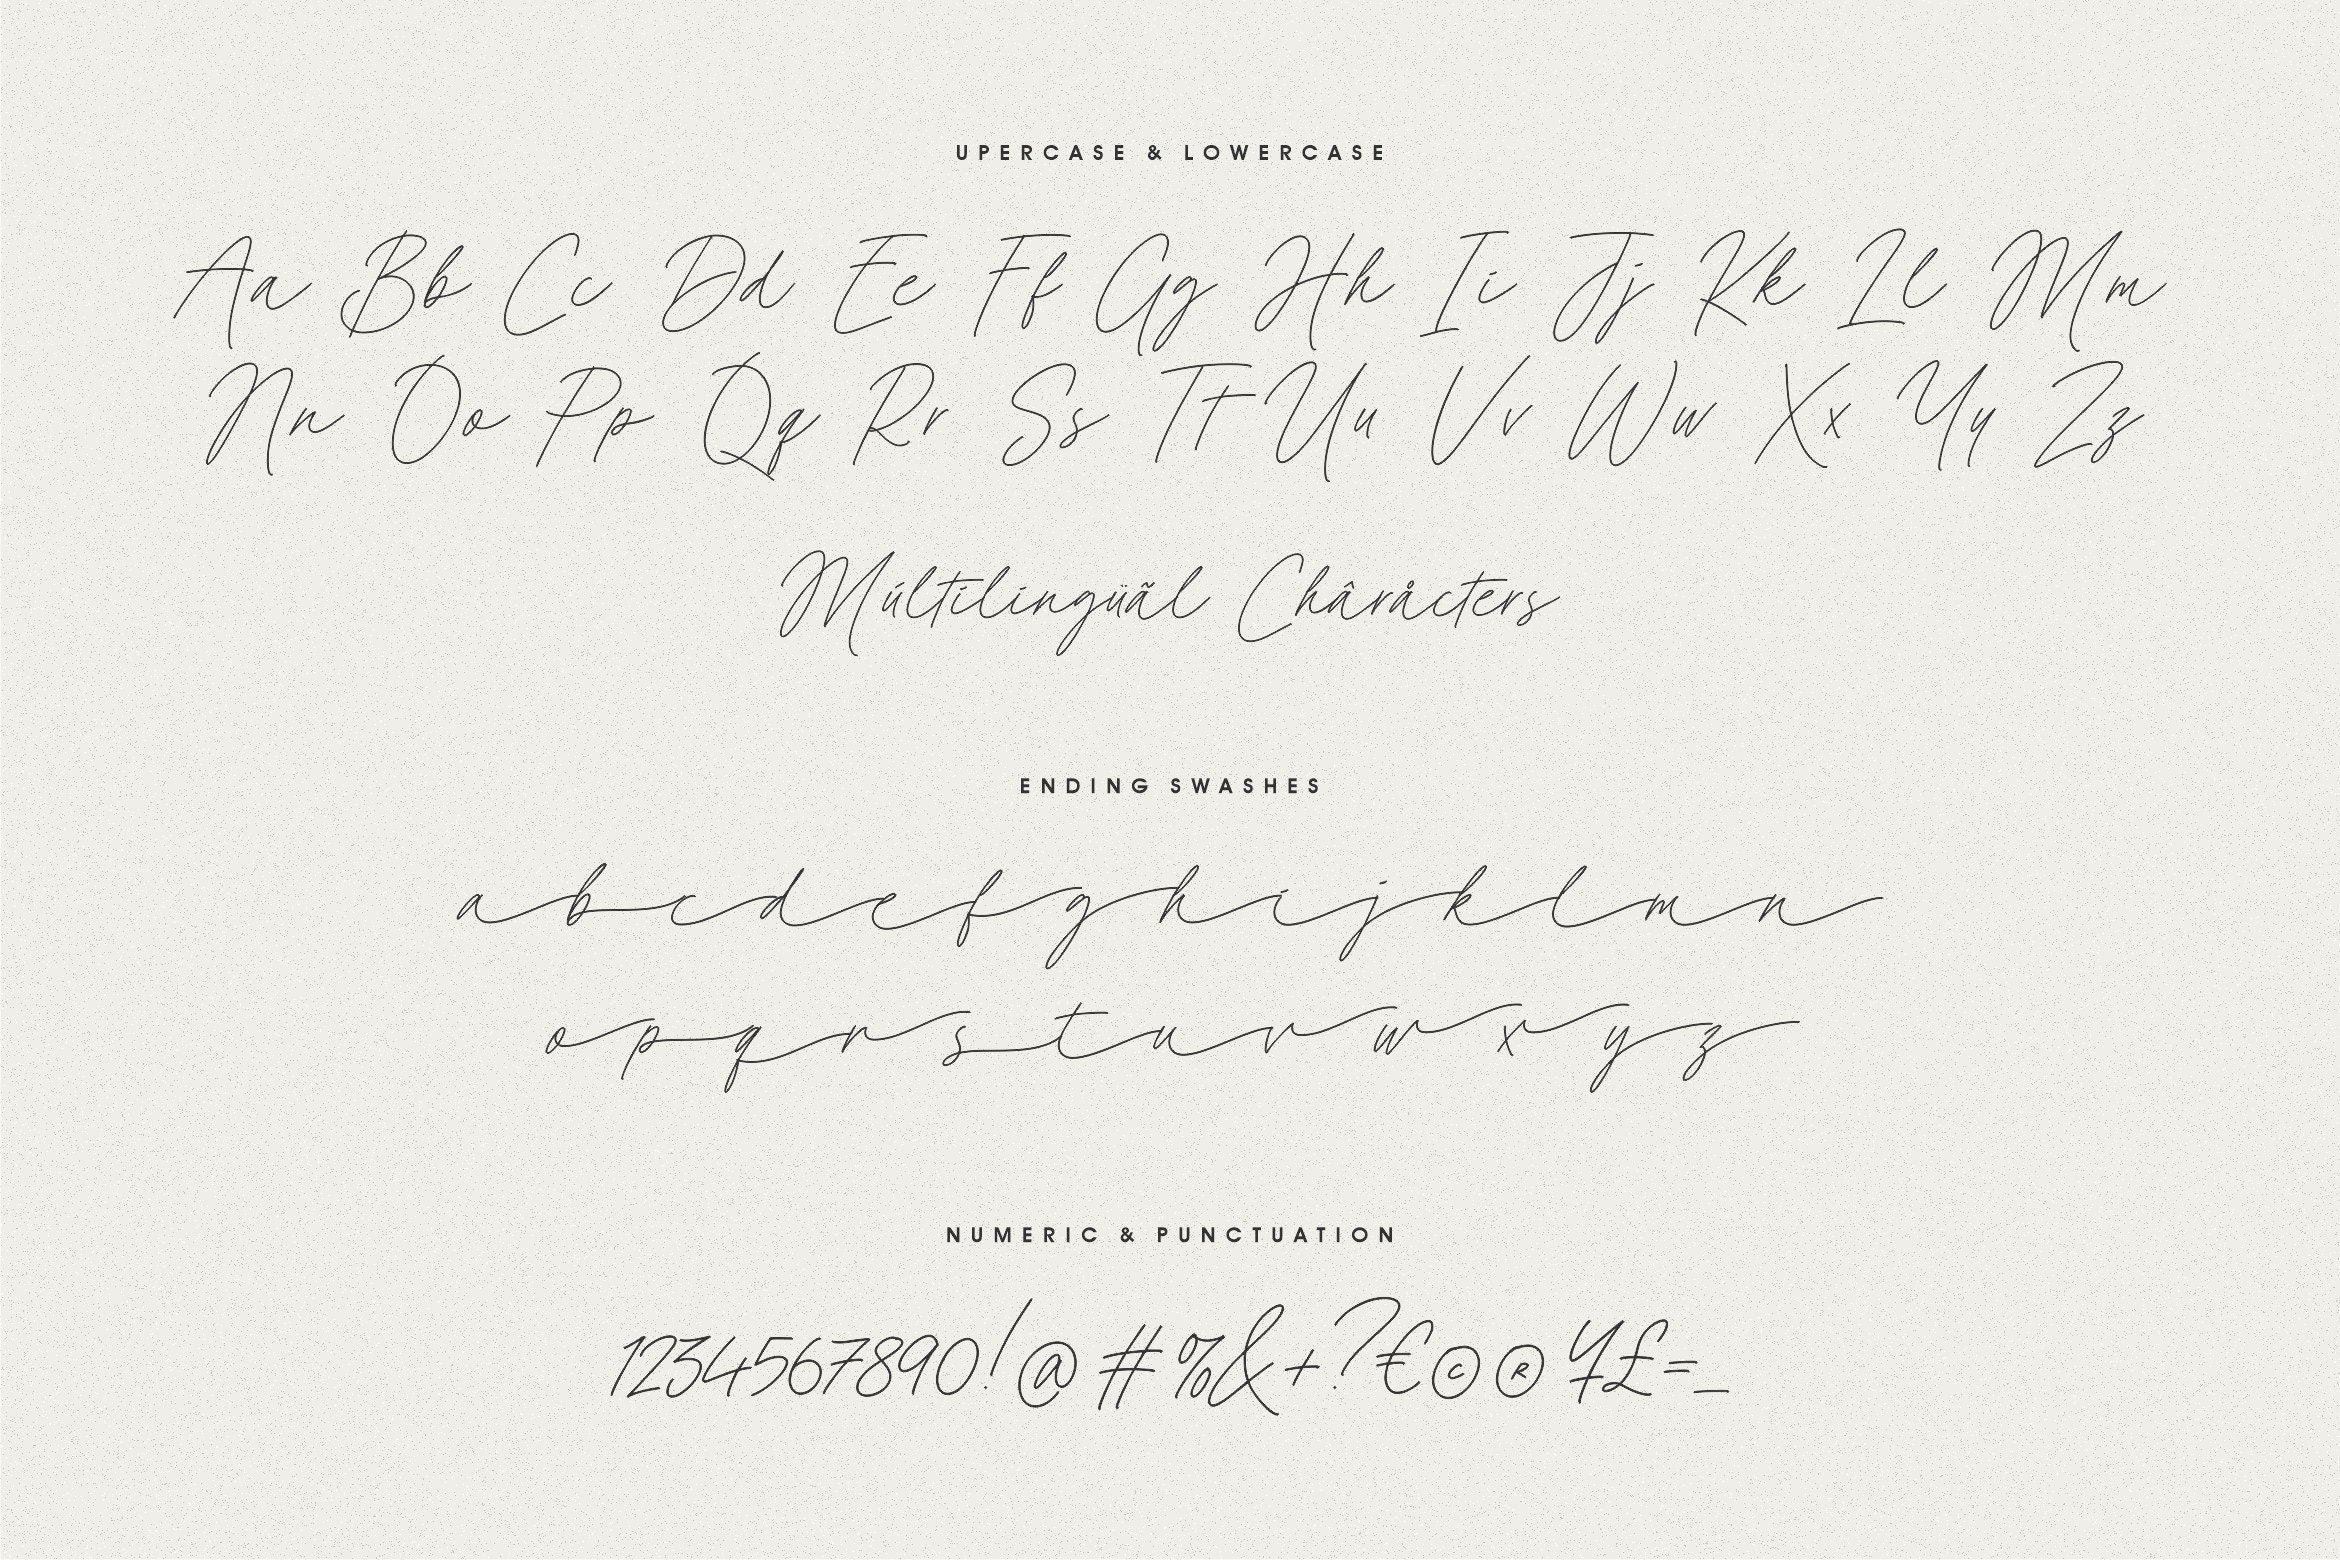 UPERCASE & LOWERCASE
Aa Bb Cc Dd Ee Ff Gg Hh Ii Jj Kk Ll Mm
Nn Oo Pp Qq Rr Ss Tt Uu Vv Ww Xx Yy Zz
Múltilingüãl Châråcters
ENDING SWASHES
abcdefghijklmn
opqrstuvwxyz
NUMERIC & PUNCTUATION
1234567890!@#%&+?€©®¥£=_